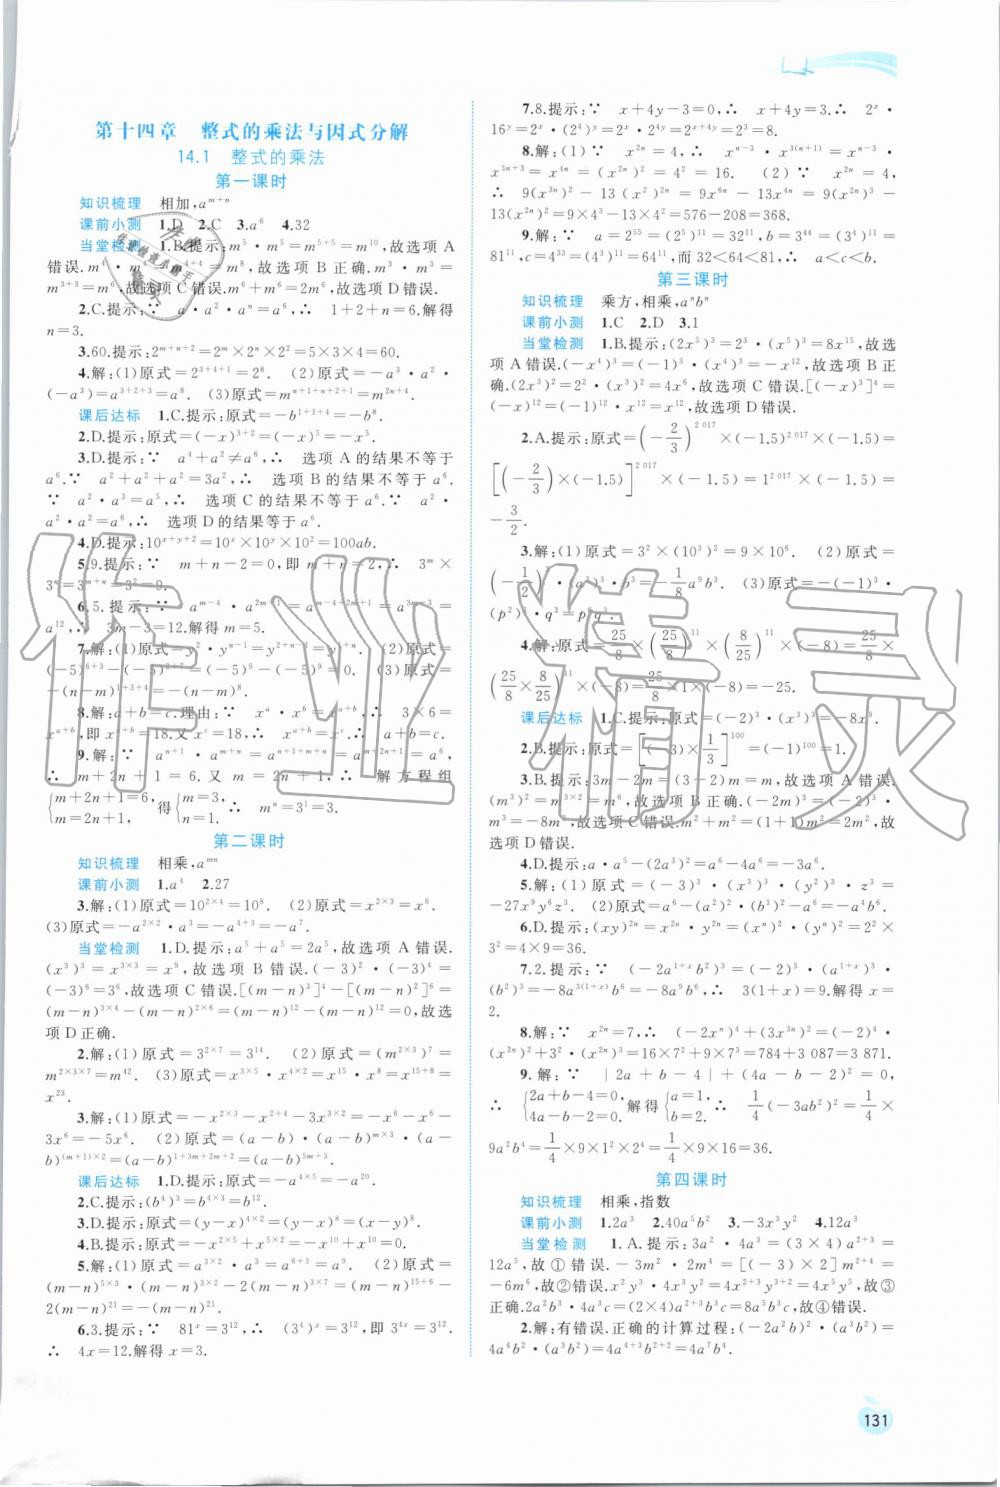 第十四章 整式的乘法与因式分解
14.1 整式的乘法
第一课时
知识梳理 相加,a^{m+n}
课前小测 1.D 2.C 3.a^6 4.32
当堂检测 1.B.提示:m^5·m^5=m^{5+5}=m^{10},故选项A
错误.
m^{3+3}=m^6,故选项C错误.m^6+m^6=2m^6,故选项D错误.
2.C.提示:∵ a·a^2·a^n=a^6,∴ 1+2+n=6.解得
n=3.
3.60.提示:2^{m+n+2}=2^m×2^n×2^2=5×3×4=60.
4.解:(1)原式=2^{3+4+1}=2^8. (2)原式=-a^3·a^2·
(-a^3)=a^{3+2+3}=a^8. (3)原式=m^{n+1+n+2+1}=m^{2n+4}.
课后达标 1.C.提示:原式=-b^{1+3+4}=-b^8.
2.D.提示:原式=(-x)^{3+2}=(-x)^5=-x^5.
3.D.提示:∵ a^4+a^2≠a^6,∴ 选项A的结果不等于
a^6.∵ a^2+a^2+a^2=3a^2,∴ 选项B的结果不等于a^6.
∵ a^2·a^3=a^5,∴ 选项C的结果不等于a^6.∵ a^2·
a^2·a^2=a^6,∴ 选项D的结果等于a^6.
4.D.提示:10^{x+y+2}=10^x×10^y×10^2=100ab.
5.9.提示:∵ m+n-2=0,即m+n=2,∴ 3^m×
3^n=3^{m+n}=3^2=9.
6.5.提示:∵ a^{m-4}·a^{2m+1}=
a^{12},∴ 3m-3=12.解得m=5.
7.解:(1)原式=-y^2·y^{n-1}=-y^{2+n-1}=-y^{1+n}. (2)原式=
(-5)^{6+3}-(-5)^{8+1}=(-5)^9-(-5)^9=0. (3)原式=
-(n-m)^{1+3+4}=-(n-m)^8.
8.解:a+b=c.理由:∵ x^a·x^b=x^{a+b},∴ 3×6=
x^{a+b},即x^{a+b}=18.又x^c=18,∴ a+b=c.
9.解:∵ a^{n+1}·a^{m+n}=a^{n+1+m+n}=a^{m+2n+1}=a^6,
∴ m+2n+1=6.又m=2n+1,∴ 解方程组
{m+2n+1=6, m=2n+1, 得{m=3, n=1. ∴ m^n=3^1=3.
第二课时
知识梳理 相乘,a^{mn}
课前小测 1.a^4 2.27
3.解:(1)原式=10^{2×4}=10^8. (2)原式=x^{2×3}=x^6.
(3)原式=-a^{2×2}·a^3=-a^{4+3}=-a^7.
当堂检测 1.D.提示:a^5+a^5=2a^5,故选项A错误.
(x^3)^3=x^{3×3}=x^9,故选项B错误.(-3)^2·(-3)^4=
(-3)^6=3^6,故选项C错误.[(m-n)^3]^4-[(m-n)^2]^6=
(m-n)^{3×4}-(m-n)^{2×6}=(m-n)^{12}-(m-n)^{12}=0,故选
项D正确.
2.解:(1)原式=3^{2×7}=3^{14}. (2)原式=(m^{2×3})^7=
m^{2×3×7}=m^{42}. (3)原式=x^{3×5}·x^{4×2}=x^{15}·x^8=x^{15+8}=
x^{23}.
3.解:(1)原式=-x^{2×3}-x^{2+4}-3x^{3×2}=-x^6-x^6-
3x^6=-5x^6. (2)原式=(a-b)·(a-b)^{m×3}·(a-
b)^{(m+1)×2}=(a-b)^{1+3m+2m+2}=(a-b)^{5m+3}.
课后达标 1.D.提示:原式=-a^{4×5}=-a^{20}.
2.C.提示:(b^4)^3=b^{4×3}=b^{12}.
3.D.提示:原式=(y-x)^{4×2}=(y-x)^8=(x-y)^8.
4.B.提示:原式=-x^{2×5}+x^{5×2}=-x^{10}+x^{10}=0.
5.解:(1)原式=a^{3×2}·a^3=a^{6+3}=a^9. (2)原式=
(m-n)^{5×3}·(m-n)^{3×2}-2(m-n)^{7×3}=(m-n)^{15+6}-
2(m-n)^{21}=-(m-n)^{21}.
6.3.提示:∵ 81^x=3^{12},∴ (3^4)^x=3^{12},即3^{4x}=3^{12}.
∴ 4x=12.解得x=3.
7.8.提示:∵ x+4y-3=0,∴ x+4y=3.∴ 2^x·
16^y=2^x·(2^4)^y=2^x·2^{4y}=2^{x+4y}=2^3=8.
8.解:(1)∵ x^{2n}=4,∴ x^{n-3}·x^{3(n+1)}=x^{n-3}·
x^{3n+3}=x^{4n}=(x^{2n})^2=4^2=16. (2)∵ x^{2n}=4,
∴ 9(x^{3n})^2-13(x^2)^{2n}=9x^{6n}-13x^{4n}=9(x^{2n})^3-
13(x^{2n})^2=9×4^3-13×4^2=576-208=368.
9.解:∵ a=2^{55}=(2^5)^{11}=32^{11},b=3^{44}=(3^4)^{11}=
81^{11},c=4^{33}=(4^3)^{11}=64^{11},而32<64<81,∴ a<c<b.
第三课时
知识梳理 乘方,相乘,a^nb^n
课前小测 1.C 2.D 3.1
当堂检测 1.B.提示:(2x^5)^3=2^3·(x^5)^3=8x^{15},故选
项A错误.(-x^4)^3=(-1)^3·(x^4)^3=-x^{12},故选项B正
确.(2x^3)^2=2^2·(x^3)^2=4x^6,故选项C错误.[(-x)^3]^4=
(-x)^{12}=(-1)^{12}·x^{12}=x^{12},故选项D错误.
2.A.提示:原式=(-2/3)^{2 017}×(-1.5)^{2 017}×(-1.5)=
[(-2/3)×(-1.5)]^{2 017}×(-1.5)=1^{2 017}×(-1.5)=
-3/2.
3.解:(1)原式=3^2×(10^3)^2=9×10^6. (2)原式=
(-1/2)^3·(a^3)^3·b^3=-1/8a^9b^3. (3)原式=
4.解:原式=25/8×(25/8)^{11}×(8/25)^{11}×(-8)=25/8×
(25/8×8/25)^{11}×(-8)=25/8×1×(-8)=-25.
课后达标 1.C.提示:原式=(-2)^3·(x^3)^3=-8x^9.
2.B.提示:原式=[(-3)×1/3]^{100}=(-1)^{100}=1.
3.B.提示:3m-2m=(3-2)m=m,故选项A错误.
(m^3)^2=m^{3×2}=m^6,故选项B正确.(-2m)^3=(-2)^3·
m^3=-8m^3,故选项C错误.m^2+m^2=(1+1)m^2=2m^2,故
选项D错误.
4.D.提示:a·a^5-(2a^3)^2=a^6-4a^6=-3a^6.
5.解:(1)原式=(-3)^3·(x^3)^3·(y^2)^3·z^3=
-27x^9y^6z^3. (2)原式=a^6-(a^2)^2·(b^3)^2-a^6=-a^4b^6.
6.D.提示:(xy)^{2n}=x^{2n}·y^{2n}=(x^n)^2·(y^n)^2=2^2×
3^2=4×9=36.
7.2.提示:∵ (-2a^{1+x}b^2)^3=(-2)^3·(a^{1+x})^3·
(b^2)^3=-8a^{3(1+x)}b^6=-8a^9b^6,∴ 3(1+x)=9.解得x=
2.
8.解:∵ x^{2n}=7,∴ (-2x^n)^4+(3x^{3n})^2=(-2)^4·
(x^{2n})^2+3^2·(x^{2n})^3=16×7^2+9×7^3=784+3 087=3 871.
9.解:∵ |2a+b-4|+(4a-b-2)^2=0,
∴ {2a+b-4=0, 4a-b-2=0. 解得{a=1, b=2. ∴ 1/4(-3ab^2)^2=1/4×
9a^2b^4=1/4×9×1^2×2^4=1/4×9×16=36.
第四课时
知识梳理 相乘,指数
课前小测 1.2a^3 2.40a^5b^2 3.-3x^3y^2 4.12a^3
当堂检测 1.A.提示:3a^2·4a^3=(3×4)a^{2+3}=
12a^5,故①错误.-3m^2·2m^4=[(-3)×2]m^{2+4}=
-6m^6,故②错误.x^2y^3·4x^3y^2=4x^{2+3}y^{3+2}=4x^5y^5,故③
正确.2a^2b^3·4a^3c=(2×4)a^{2+3}b^3c=8a^5b^3c,故④错误.
2.解:有错误.正确的计算过程:(-2a^2b)^2·(a^3b^2)=
4a^4b^2·(a^3b^2)=4a^{4+3}b^{2+2}=4a^7b^4.
131